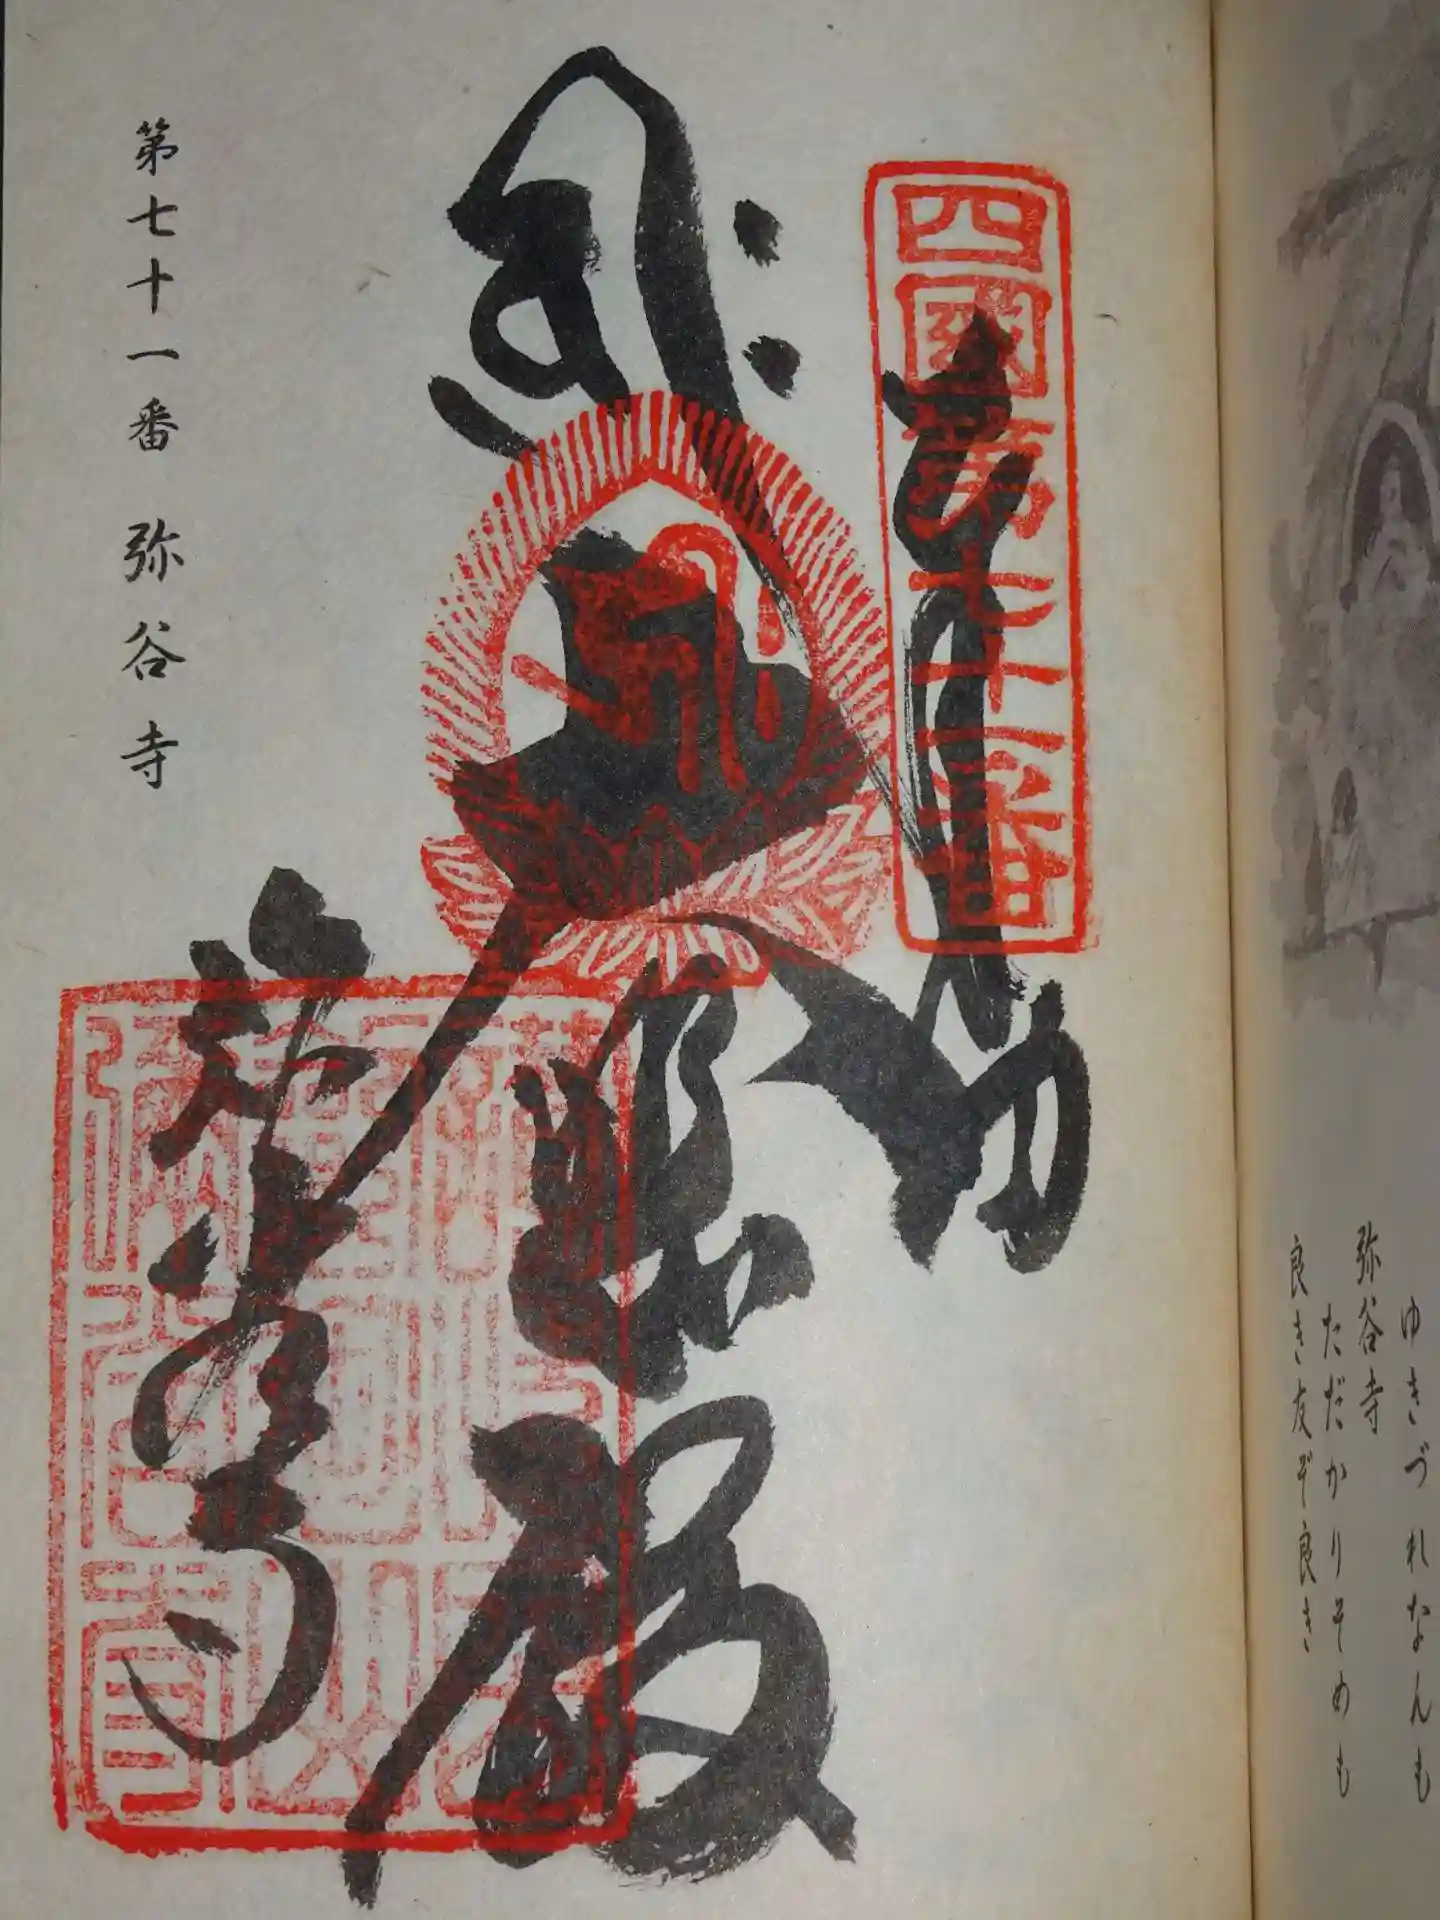 ゆきづれなんも
弥谷寺
ただかりそめも
良き友ぞ良き
四國第七十一番
奉納
大悲殿
弥谷寺
第七十一番 弥谷寺